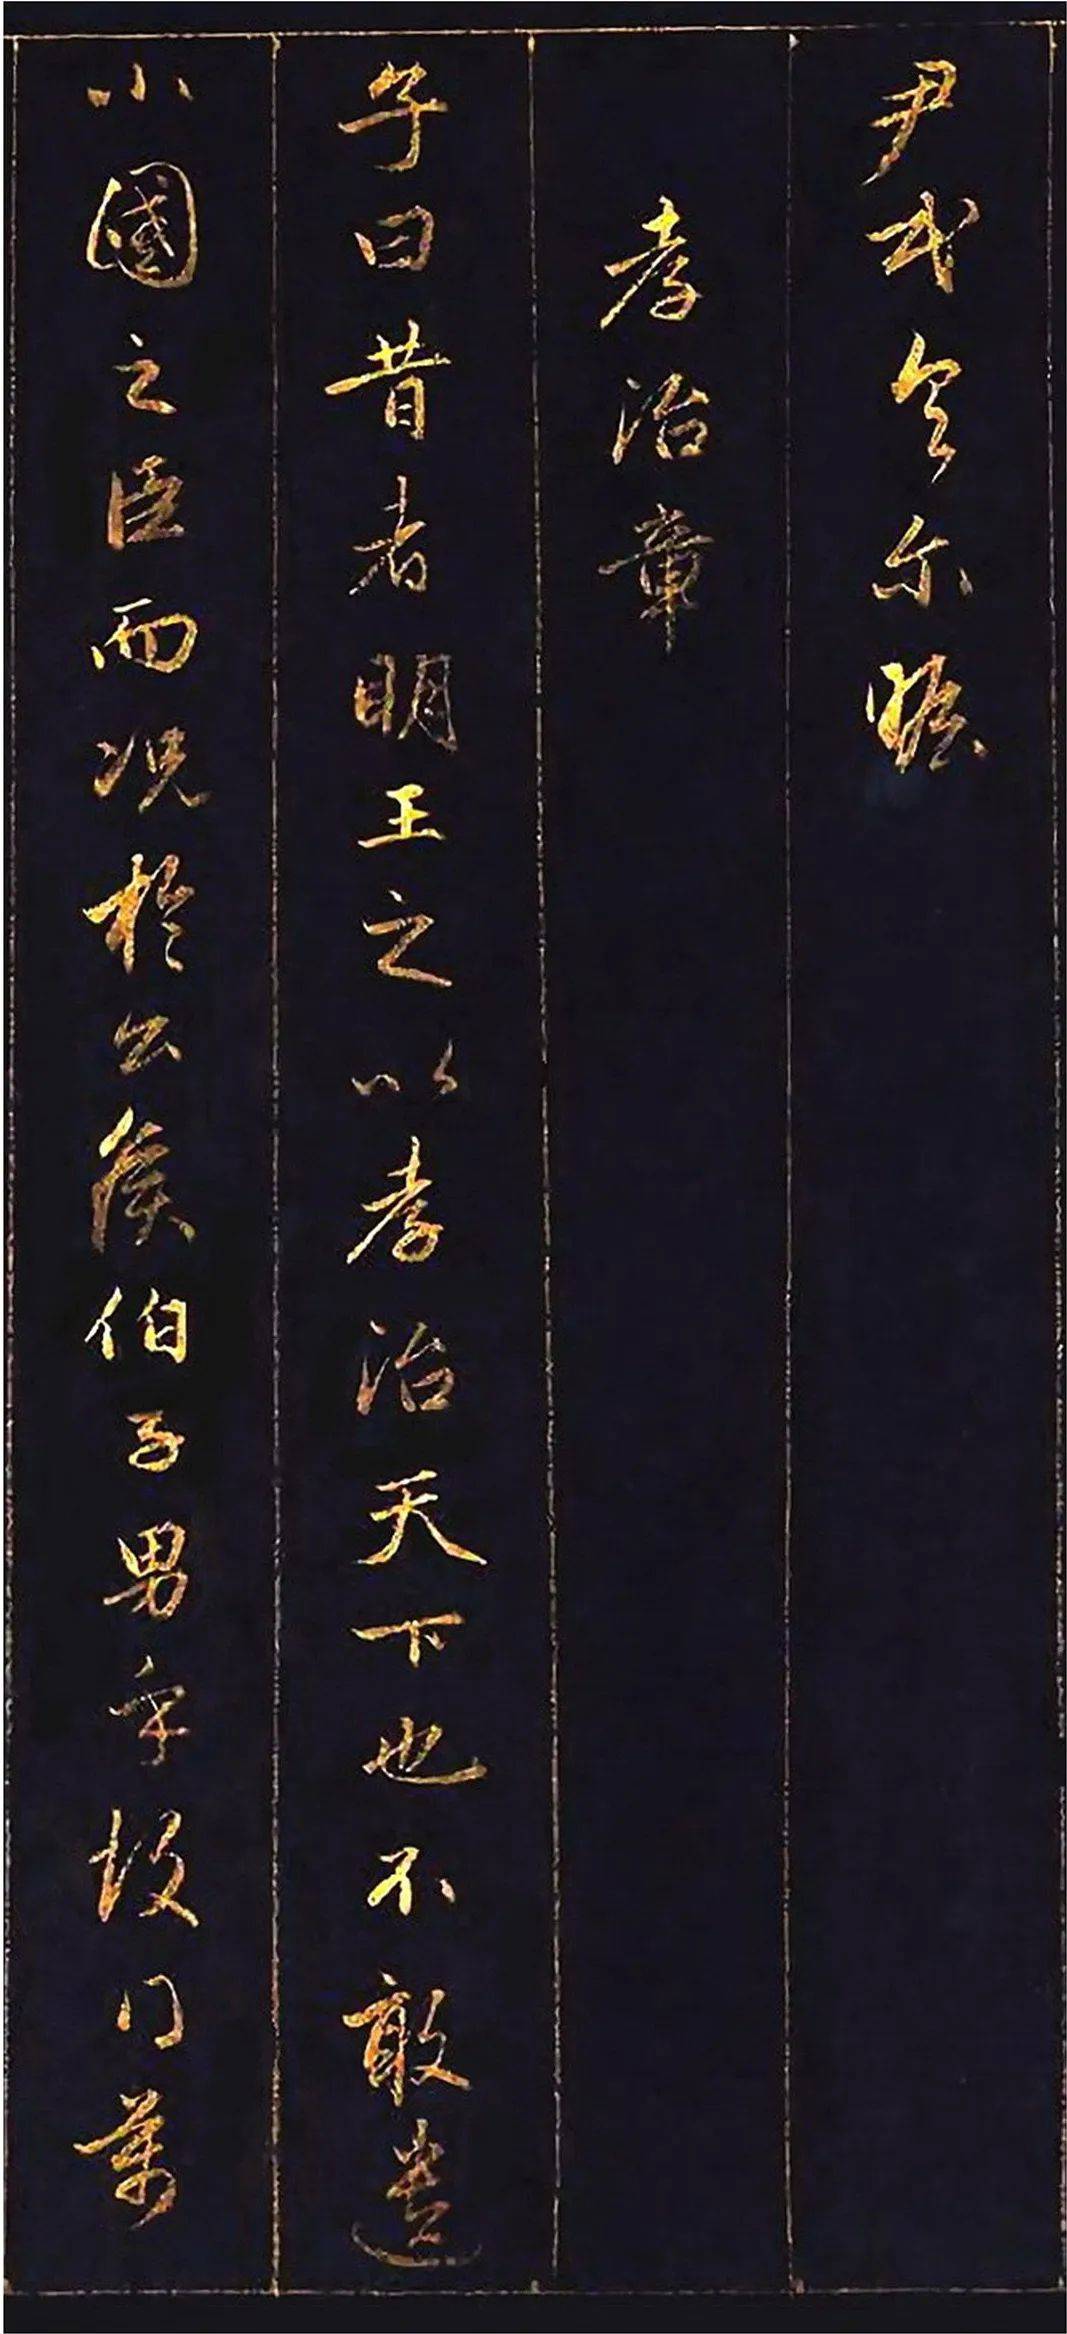 尹民具尔瞻
孝治章
子曰昔者明王之以孝治天下也不敢遗
小國之臣而况於公侯伯子男乎故得萬